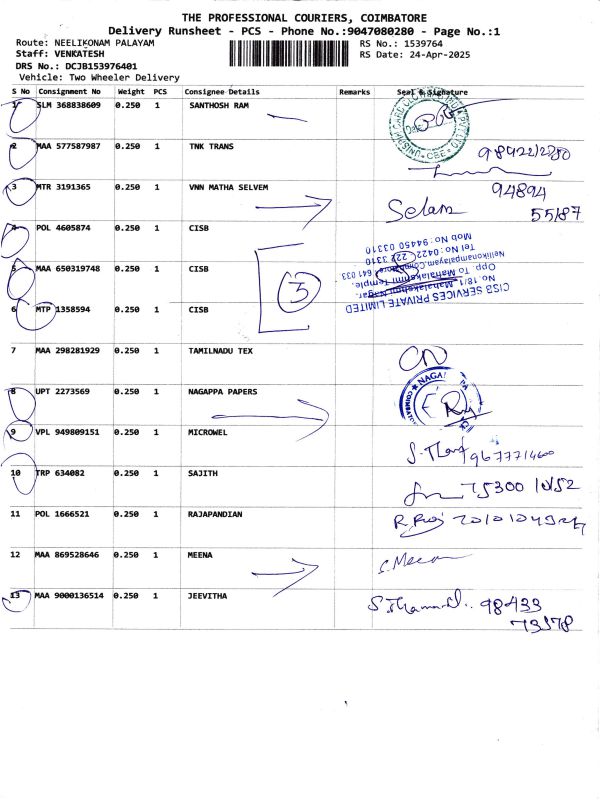 THE PROFESSIONAL COURIERS, COIMBATORE
Delivery Runsheet - PCS - Phone No.:9047080280 - Page No.:1
Route: NEELIKONAM PALAYAM
RS No.: 1539764
Staff: VENKATESH
RS Date: 24-Apr-2025
DRS No.: DCJB153976401
Vehicle: Two Wheeler Delivery
S No Consignment No Weight PCS Consignee Details Remarks Seal & Signature
1 SLM 368838609 0.250 1 SANTHOSH RAM
2 MAA 577587987 0.250 1 TNK TRANS
3 MTR 3191365 0.250 1 VNN MATHA SELVEM
94894
Selam 55187
4 POL 4605874 0.250 1 CISB
5 MAA 650319748 0.250 1 CISB
3
CISB SERVICES PRIVATE LIMITED
No.18/1, Mahalakshmi Nagar,
Opp. To Mahalakshmi Temple,
Neelikonampalayam, Coimbatore - 641 033.
Tel No: 0422 222 3310
Mob No: 94450 03310
6 MTP 1358594 0.250 1 CISB
7 MAA 298281929 0.250 1 TAMILNADU TEX
8 UPT 2273569 0.250 1 NAGAPPA PAPERS
9 VPL 949809151 0.250 1 MICROWEL
10 TRP 634082 0.250 1 SAJITH
75300 10152
11 POL 1666521 0.250 1 RAJAPANDIAN
12 MAA 869528646 0.250 1 MEENA
13 MAA 9000136514 0.250 1 JEEVITHA
98433
73578